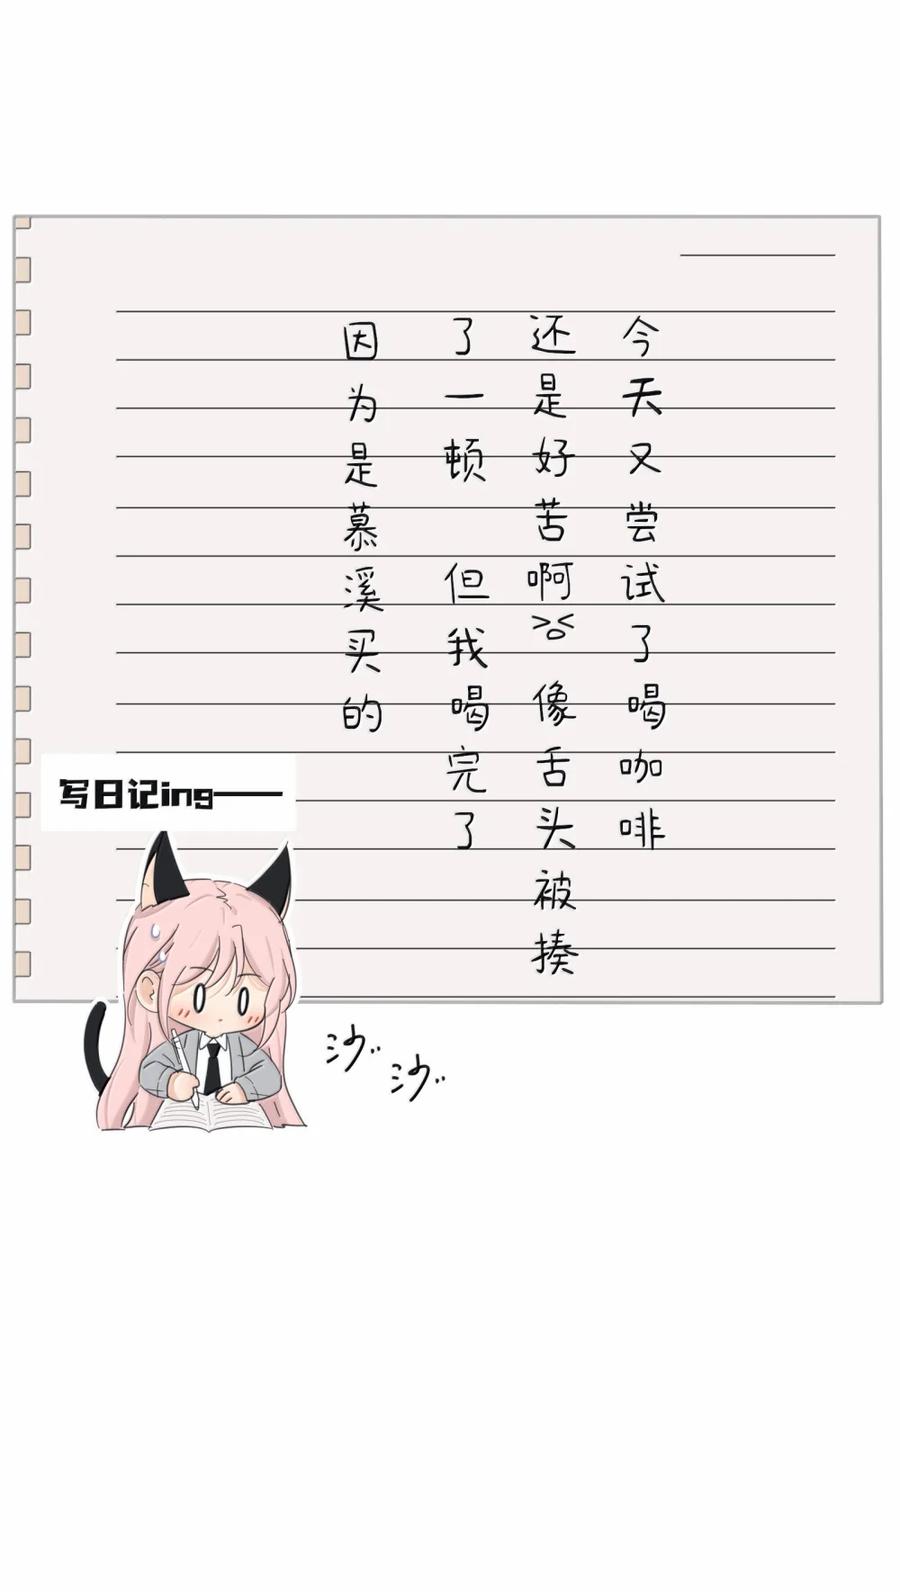 今天又尝试了喝咖啡
还是好苦啊>o<像舌头被揍
了一顿 但我喝完了
因为是慕溪买的
写日记ing——
沙..
沙..